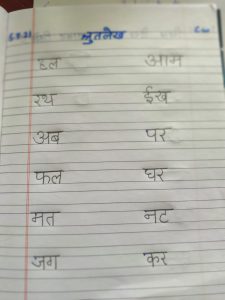 श्रुतलेख
हल आम
रथ ईख
अब पर
फल घर
मत नट
जग कर